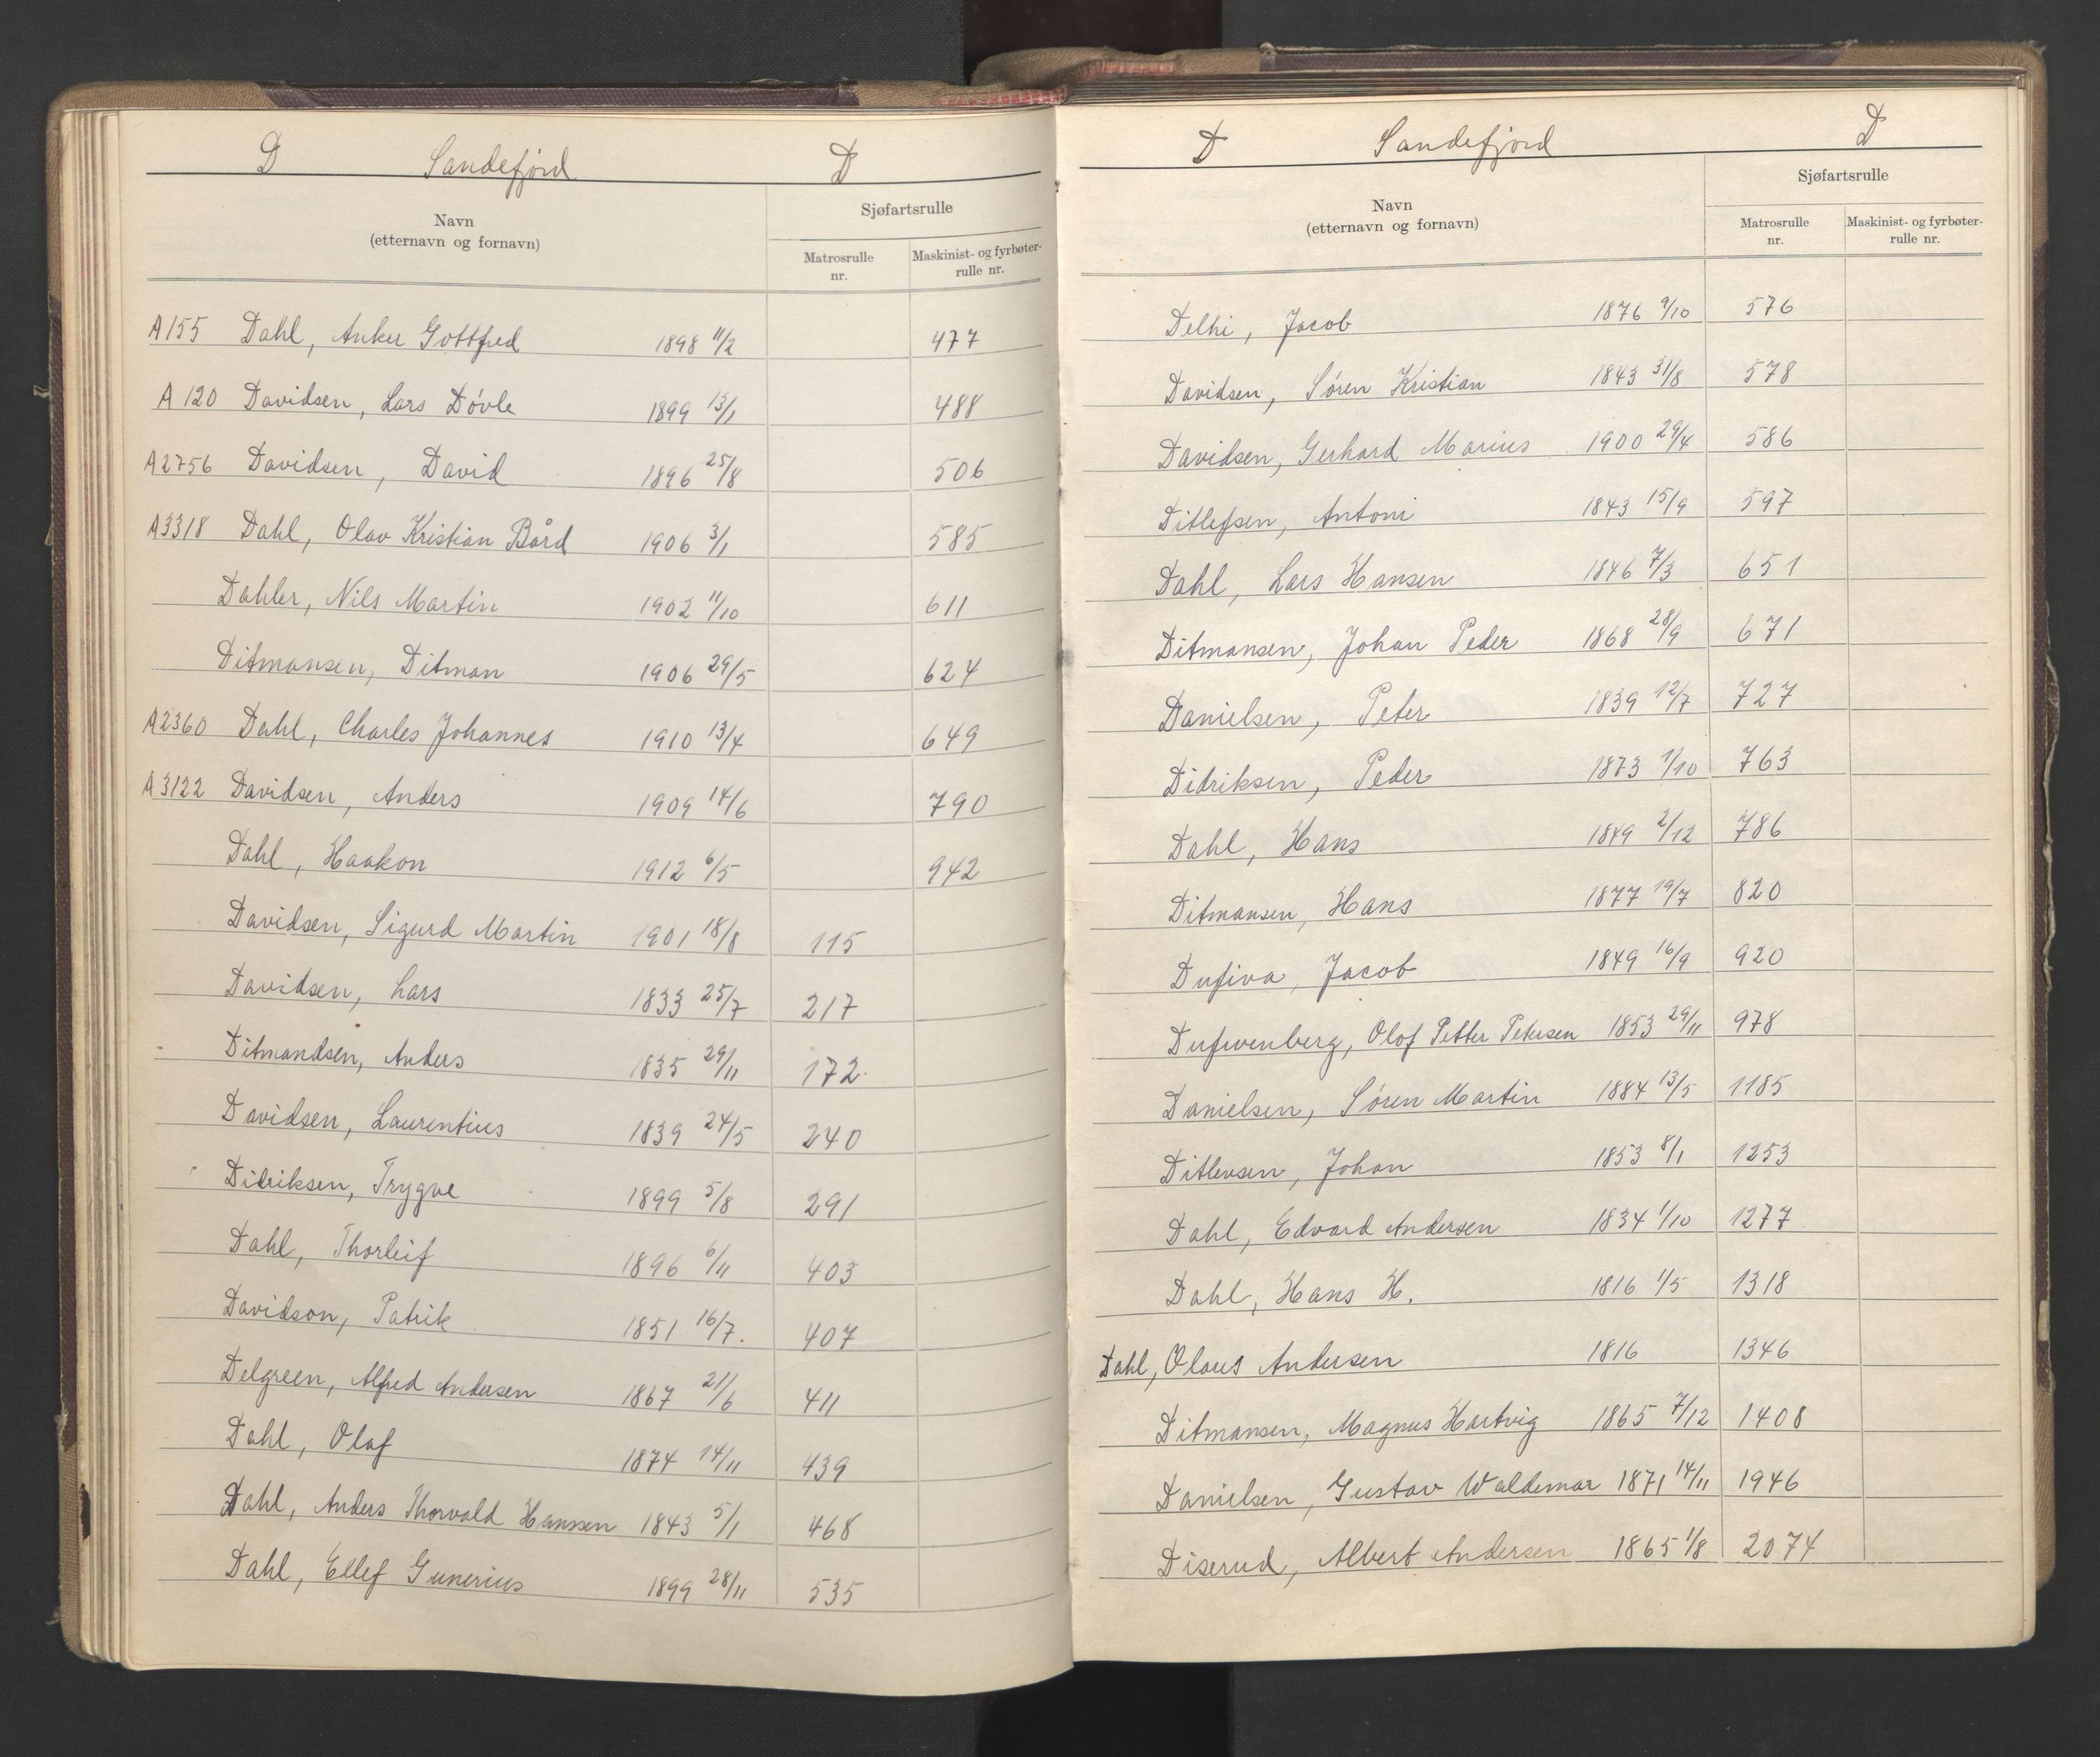 D Sandefjord D
Navn
(etternavn og fornavn)
Sjøfartsrulle
Matrosrulle
nr.
Maskinist- og fyrbøter-
rulle nr.
A155 Dahl, Anker Gottfred 1898 11/2 477
A 120 Davidsen, Lars Døvle 1899 13/1 488
A2756 Davidsen, David 1896 25/8 506
A3318 Dahl, Olav Kristian Bård 1906 3/1 585
Dahler, Nils Martin 1902 11/10 611
Ditmansen, Ditman 1906 29/5 624
A2360 Dahl, Charles Johannes 1910 13/4 649
A3122 Davidsen, Anders 1909 14/6 790
Dahl, Haakon 1912 6/5 942
Davidsen, Sigurd Martin 1901 18/8 115
Davidsen, Lars 1833 25/7 217
Ditmandsen, Anders 1835 29/11 172
Davidsen, Laurentius 1839 24/5 240
Didriksen, Trygve 1899 5/8 291
Dahl, Thorleif 1896 6/11 403
Davidson, Patrik 1851 16/7. 407
Delgreen, Alfred Andersen 1867 21/6 411
Dahl, Olaf 1874 14/11 439
Dahl, Anders Thorvald Hanssen 1843 5/1 468
Dahl, Ellef Gunerius 1899 28/11 535
D Sandefjord D
Navn
(etternavn og fornavn)
Sjøfartsrulle
Matrosrulle
nr.
Maskinist- og fyrbøter-
rulle nr.
Delhi, Jacob 1876 9/10 576
Davidsen, Søren Kristian 1843 31/8 578
Davidsen, Gerhard Marius 1900 29/4 586
Ditlefsen, Antoni 1843 15/9 597
Dahl, Lars Hansen 1846 7/3 651
Ditmansen, Johan Peder 1868 28/9 671
Danielsen, Peter 1839 12/7 727
Didriksen, Peder 1873 1/10 763
Dahl, Hans 1849 2/12 786
Ditmansen, Hans 1877 19/7 820
Dufiva, Jacob 1849 16/9 920
Dufwenberg, Olof Petter Petersen 1853 29/11 978
Danielsen, Søren Martin 1884 13/5 1185
Ditlevsen, Johan 1853 8/1 1253
Dahl, Edvard Andersen 1834 1/10 1277
Dahl, Hans H. 1816 1/5 1318
Dahl, Olaus Andersen 1816 1346
Ditmansen, Magnus Hartvig 1865 7/12 1408
Danielsen, Gustav Waldemar 1871 14/11 1946
Diserud, Albert Andersen 1865 1/8 2074